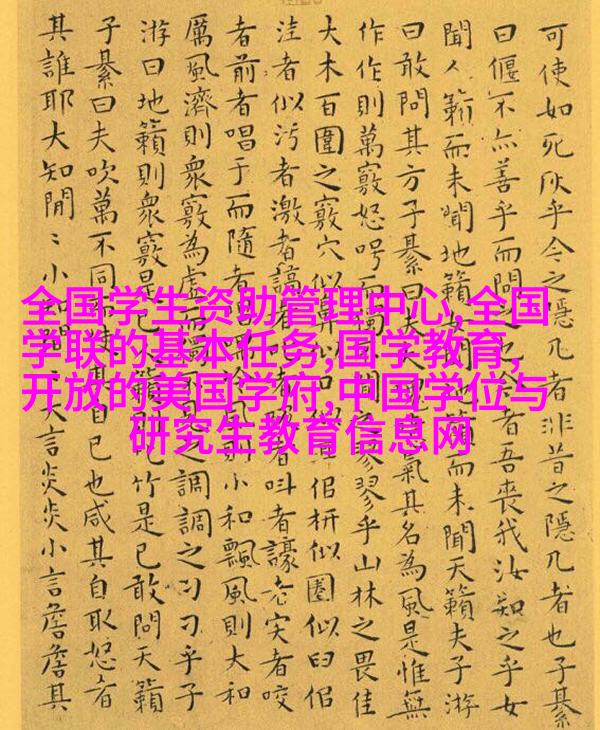 全国学生资助管理中心,全国
学联的基本任务,国学教育,
开放的美国学府,中国学位与
研究生教育信息网
可使如死灰乎今之隱几者非昔之隱几者也子綦
曰偃不亦善乎而問之者吾喪我汝知之乎女
聞人籟而未聞地籟女聞地籟而未聞天籟夫子游
曰敢問其方子綦曰夫大氣其名為風是惟無
作作則萬竅怒呺而之翏翏乎山林之畏佳
大木百圍之竅穴似鼻似似枅似圈似臼似
洼者似污者激者謞者者叫者譹者宎者咬
者前者唱于而隨者風則小和飄風則大和
厲風濟則衆竅為虛而之調調之刁刁乎子
游曰地籟則衆竅是已人籟竹是已敢問天籟
子綦曰夫吹萬不同而自已也咸其自取怒者
其誰耶大知閒〻小知大言炎炎小言詹詹其